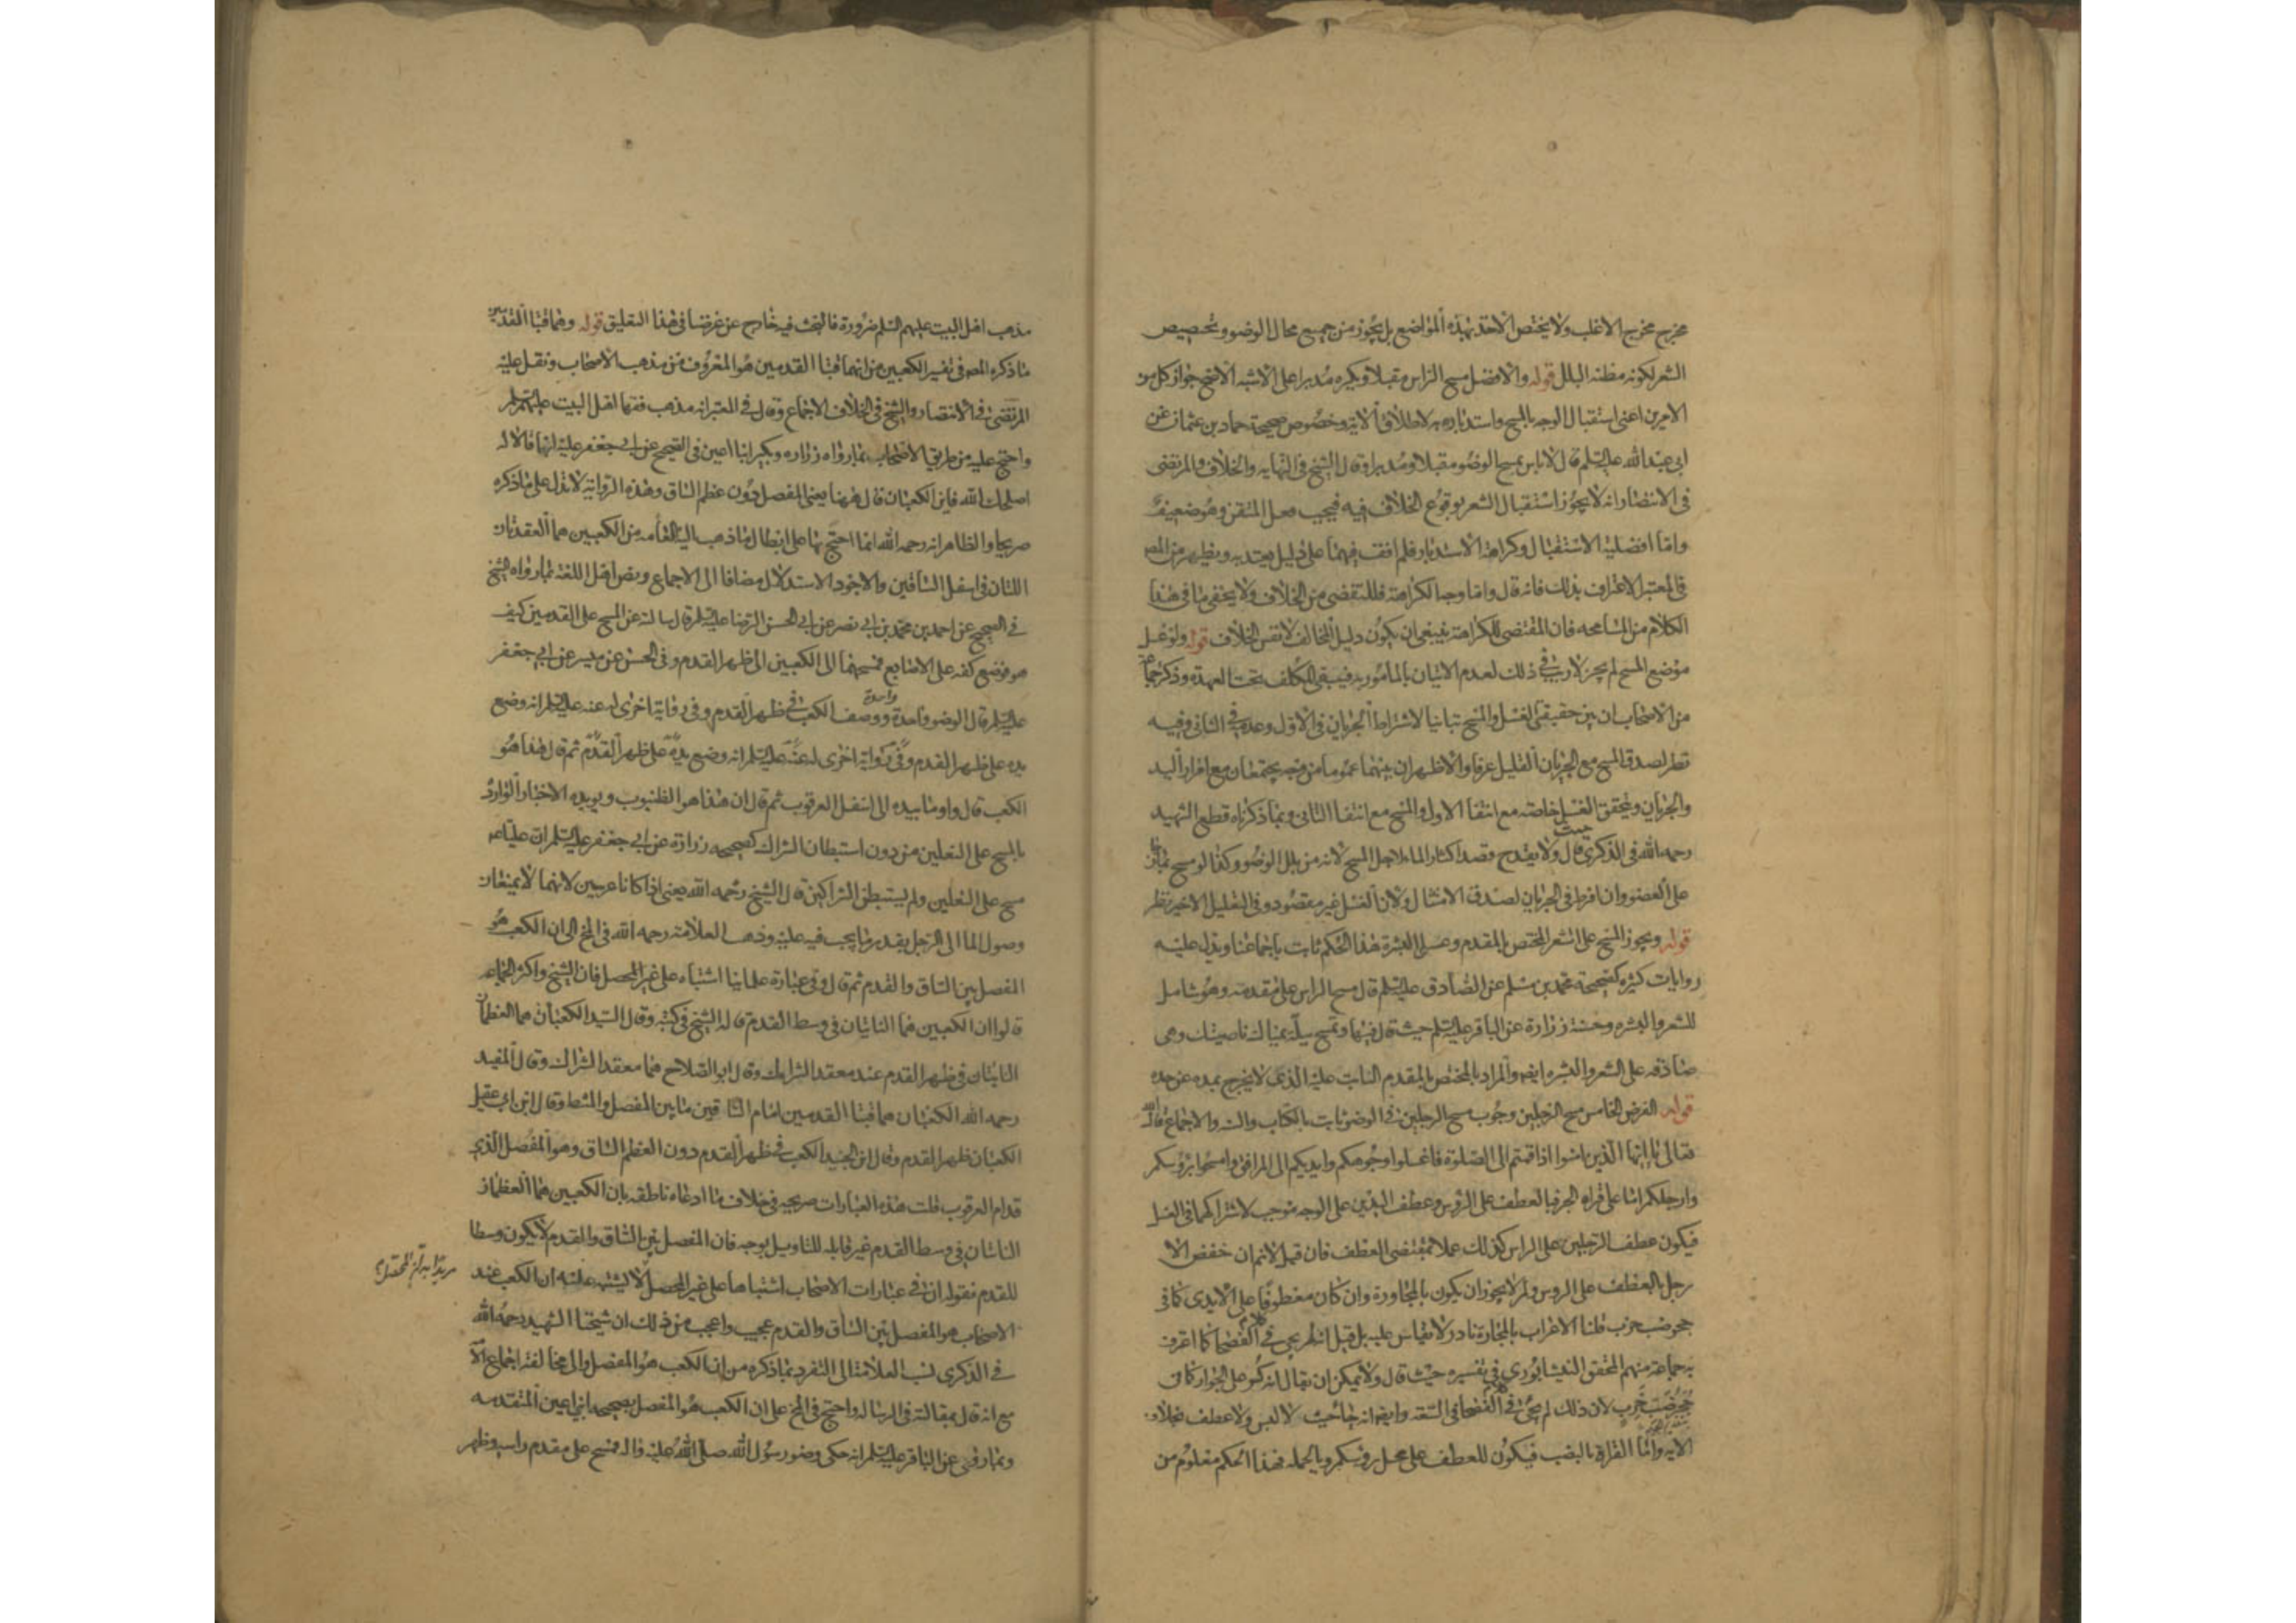 مخرج مخرج الاغلب ولا يختص الاخذ بهذه المواضع بل يجوز من جميع محال الوضو وتخصيص
الشعر لكونه مظنه البلل قوله والافضل مسح الراس مقبلا ويكره مدبرا على الاشبه الاصح جواز كل من
الامرين اعنى استقبال الوجه بالمسح واستدباره به لاطلاق الآية وخصوص صحيحة حماد بن عثمان عن
ابى عبد الله عليه السلم قال لا باس بمسح الوضو مقبلا ومدبرا وقال الشيخ فى النهايه والخلاف والمرتضى
فى الانتصار انه لا يجوز استقبال الشعر بوقوع الخلاف فيه فيجب فعل المتقن وهو ضعيف
واما افضلية الاستقبال وكراهة الاستدبار فلم اقف فيهما على دليل يعتد به ويظهر من المصر
فى المعتبر الاعتراف بذلك فانه قال واما وجه الكراهة فللتفصى من الخلاف ولا يخفى ما فى هذا
الكلام من المسامحه فان المقتضى للكراهة ينبغى ان يكون دليل المخالف لا نفس الخلاف قوله ولو غسل
موضع المسح لم يجز لا ريب فى ذلك لعدم الاتيان بالمأمور به فيبقى المكلف تحت العهدة وذكر جماعة
من الاصحاب ان بين حقيقتى الغسل والمسح تباينا لاشتراط الجريان فى الاول وعدمه فى الثانى وفيه
نظر لصدق المسح مع الجريان القليل عرفا والاظهر ان بينهما عموما من وجه يجتمعان مع امرار اليد
والجريان ويتحقق الغسل خاصة مع انتفا الاول والمسح مع انتفا الثانى وبما ذكرناه قطع الشهيد
رحمه الله فى الذكرى حيث قال ولا يقدح قصد اكثار الماء لاجل المسح لانه من بلل الوضو وكذا لو مسح بماء جار
على العضو وان افرط فى الجريان لصدق الامتثال ولان الغسل غير مقصود وفى التعليل الاخير نظر
قوله ويجوز المسح على الشعر المختص بالمقدم وعلى البشرة هذا الحكم ثابت باجماعنا ويدل عليه
روايات كثيره كصحيحة محمد بن مسلم عن الصادق عليه السلم قال مسح الراس على مقدمه وهو شامل
للشعر والبشره وحسنة زرارة عن الباقر عليه السلم حيث قال فيها وتمسح ببلة يمناك ناصيتك وهى
صادقه على الشعر والبشره ايضا والمراد بالمختص بالمقدم النابت عليه الذى لا يخرج بمده عن حده
قوله الفرض الخامس مسح الرجلين وجوب مسح الرجلين فى الوضو ثابت بالكتاب والسنه والاجماع قال الله
تعالى يا ايها الذين امنوا اذا قمتم الى الصلوة فاغسلوا وجوهكم وايديكم الى المرافق وامسحوا برؤسكم
وارجلكم اما على قراة الجر فبالعطف على الرؤس وعطف اليدين على الوجه موجب لاشتراكهما فى الغسل
فيكون عطف الرجلين على الراس كذلك عملا بمقتضى العطف فان قيل لا نم ان خفض الا
رجل بالعطف على الروس ولم لا يجوز ان يكون بالمجاورة وان كان معطوفا على الايدى كما فى
جحر ضب خرب قلنا الاعراب بالمجاورة نادر لا يقاس عليه بل قيل انه لم يجى فى كلام الفصحا كما اعترف
به جماعة منهم المحقق النيشابورى فى تفسيره حيث قال ولا يمكن ان يقال انه كسر على الجوار كما فى
جحر ضب خرب لان ذلك لم يجئ فى كلام الفصحا فى السعة وايضا انه جاء حيث لا لبس ولا عطف بخلاف
الايه واما القراة بالنصب فيكون للعطف على محل رؤسكم وبالجمله فهذا الحكم معلوم من
مذهب اهل البيت عليهم السلم ضرورة فالبحث فيه خارج عن غرضنا فى هذا التعليق قوله وهما قبتا القدمين
ما ذكره المصر فى تفسير الكعبين من انهما قبتا القدمين هو المعروف من مذهب الاصحاب ونقل عليه
المرتضى فى الانتصار والشيخ فى الخلاف الاجماع وقال فى المعتبر انه مذهب فقها اهل البيت عليهم السلم
واحتج عليه من طريق الاصحاب بما رواه زراره وبكير ابنا اعين فى الصحيح عن ابى جعفر عليه انهما قالا له
اصلحك الله فاين الكعبان قال ههنا يعنى المفصل دون عظم الساق وهذه الرواية لا تدل على ما ذكره
صريحا والظاهر انه رحمه الله انما احتج بها على ابطال ما ذهب اليه العامه من الكعبين هما العقدتان
اللتان فى اسفل الساقين والاجود الاستدلال مضافا الى الاجماع ونص اهل اللغة بما رواه الشيخ
فى الصحيح عن احمد بن محمد بن ابى نصر عن ابى الحسن الرضا عليه السلم قال سالته عن المسح على القدمين كيف
هو فوضع كفه على الاصابع فمسحهما الى الكعبين الى ظهر القدم وفى الحسن عن ميسر عن ابى جعفر
عليه السلم قال الوضو واحدة واحدة ووصف الكعب فى ظهر القدم وفى رواية اخرى له عنه عليه السلم انه وضع
يده على ظهر القدم وفى رواية اخرى له عنه عليه السلم انه وضع يده على ظهر القدم ثم قال هذا هو
الكعب قال واوما بيده الى اسفل العرقوب ثم قال ان هذا هو الظنبوب ويويده الاخبار الوارده
بالمسح على النعلين من دون استبطان الشراك كصحيحه زرارة عن ابى جعفر عليه السلم ان عليا عم
مسح على النعلين ولم يستبطن الشراكين قال الشيخ رحمه الله يعنى اذا كانا عربيين لانهما لا يمنعان
وصول الما الى الرجل بقدر ما يجب فيه عليه وذهب العلامة رحمه الله فى المخ الى ان الكعب هو
المفصل بين الساق والقدم ثم قال وفى عبارة علمائنا اشتباه على غير المحصل فان الشيخ واكثر الجماعه
قالوا ان الكعبين هما الناتيان فى وسط القدم قاله الشيخ فى كتبه وقال السيد الكعبان هما العظمان
الناتيان فى ظهر القدم عند معقد الشراك وقال ابو الصلاح هما معقد الشراك وقال المفيد
رحمه الله الكعبان هما قبتا القدمين امام الساقين ما بين المفصل والمشط وقال ابن ابى عقيل
الكعبان ظهر القدم وقال ابن الجنيد الكعب فى ظهر القدم دون العظم الساق وهو المفصل الذى
قدام العرقوب قلت هذه العبارات صريحه فى خلاف ما ادعاه ناطقه بان الكعبين هما العظمان
الناتيان فى وسط القدم غير قابله للتاويل بوجه فان المفصل بين الساق والقدم لا يكون وسطا
للقدم فقوله ان فى عبارات الاصحاب اشتباها على غير المحصل لا يشتبه عليه ان الكعب عند
الاصحاب هو المفصل بين الساق والقدم عجيب واعجب من ذلك ان شيخنا الشهيد رحمه الله
فى الذكرى نسب العلامة الى التفرد بما ذكره من ان الكعب هو المفصل والى مخالفة اجماع الامة
مع انه قال بمقالته فى الرساله واحتج فى المخ على ان الكعب هو المفصل بصحيحه ابنى اعين المتقدمه
وبما روى عن الباقر عليه السلم انه حكى وضو رسول الله صلى الله عليه واله فمسح على مقدم راسه وظهر